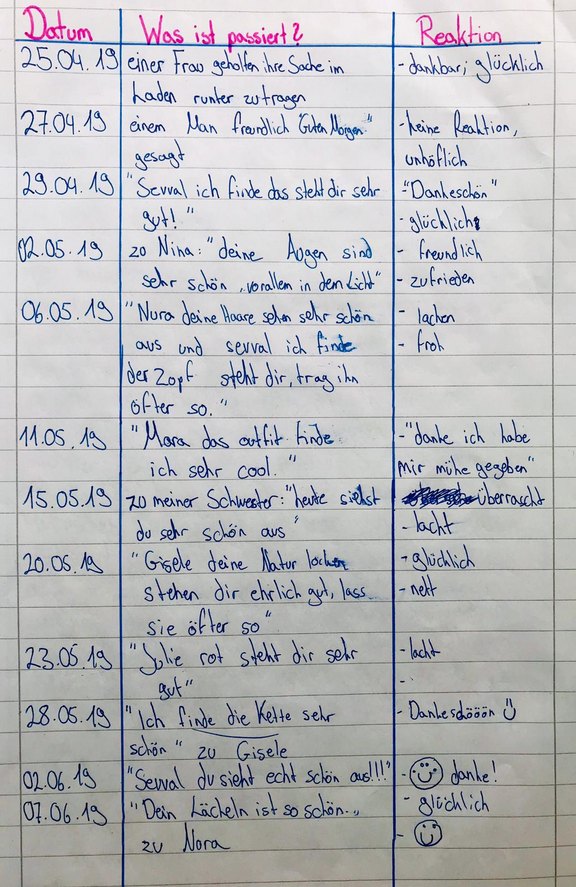 Datum Was ist passiert? Reaktion
25.04.19 einer Frau geholfen ihre Sache im - dankbar; glücklich
Laden runter zutragen
27.04.19 einem Man freundlich "Guten Morgen" - keine Reaktion,
gesagt unhöflich
29.04.19 "Sevval ich finde das steht dir sehr "Dankeschön"
gut!" - glücklich
02.05.19 zo Nina: "deine Augen sind - freundlich
sehr schön, vorallem in dem Licht" - zufrieden
06.05.19 "Nura deine Haare sehen sehr schön - lachen
aus und sevval ich finde - froh
der Zopf steht dir, trag ihn
öfter so."
11.05.19 "Mara das outfit finde - "danke ich habe
ich sehr cool." mir mühe gegeben"
15.05.19 zo meiner Schwester: "heute siehst überrascht
du sehr schön aus" - lacht
20.05.19 "Gisele deine Natur locken - glücklich
stehen dir ehrlich gut, lass - nett
sie öfter so"
23.05.19 "Julie rot steht dir sehr - lacht
gut" -
28.05.19 "Ich finde die Kette sehr - Dankeschööön
schön" zu Gisele
02.06.19 "Sevval du sieht echt schön aus!!!" - danke!
07.06.19 "Dein Lächeln ist so schön.." - glücklich
zu Nora -